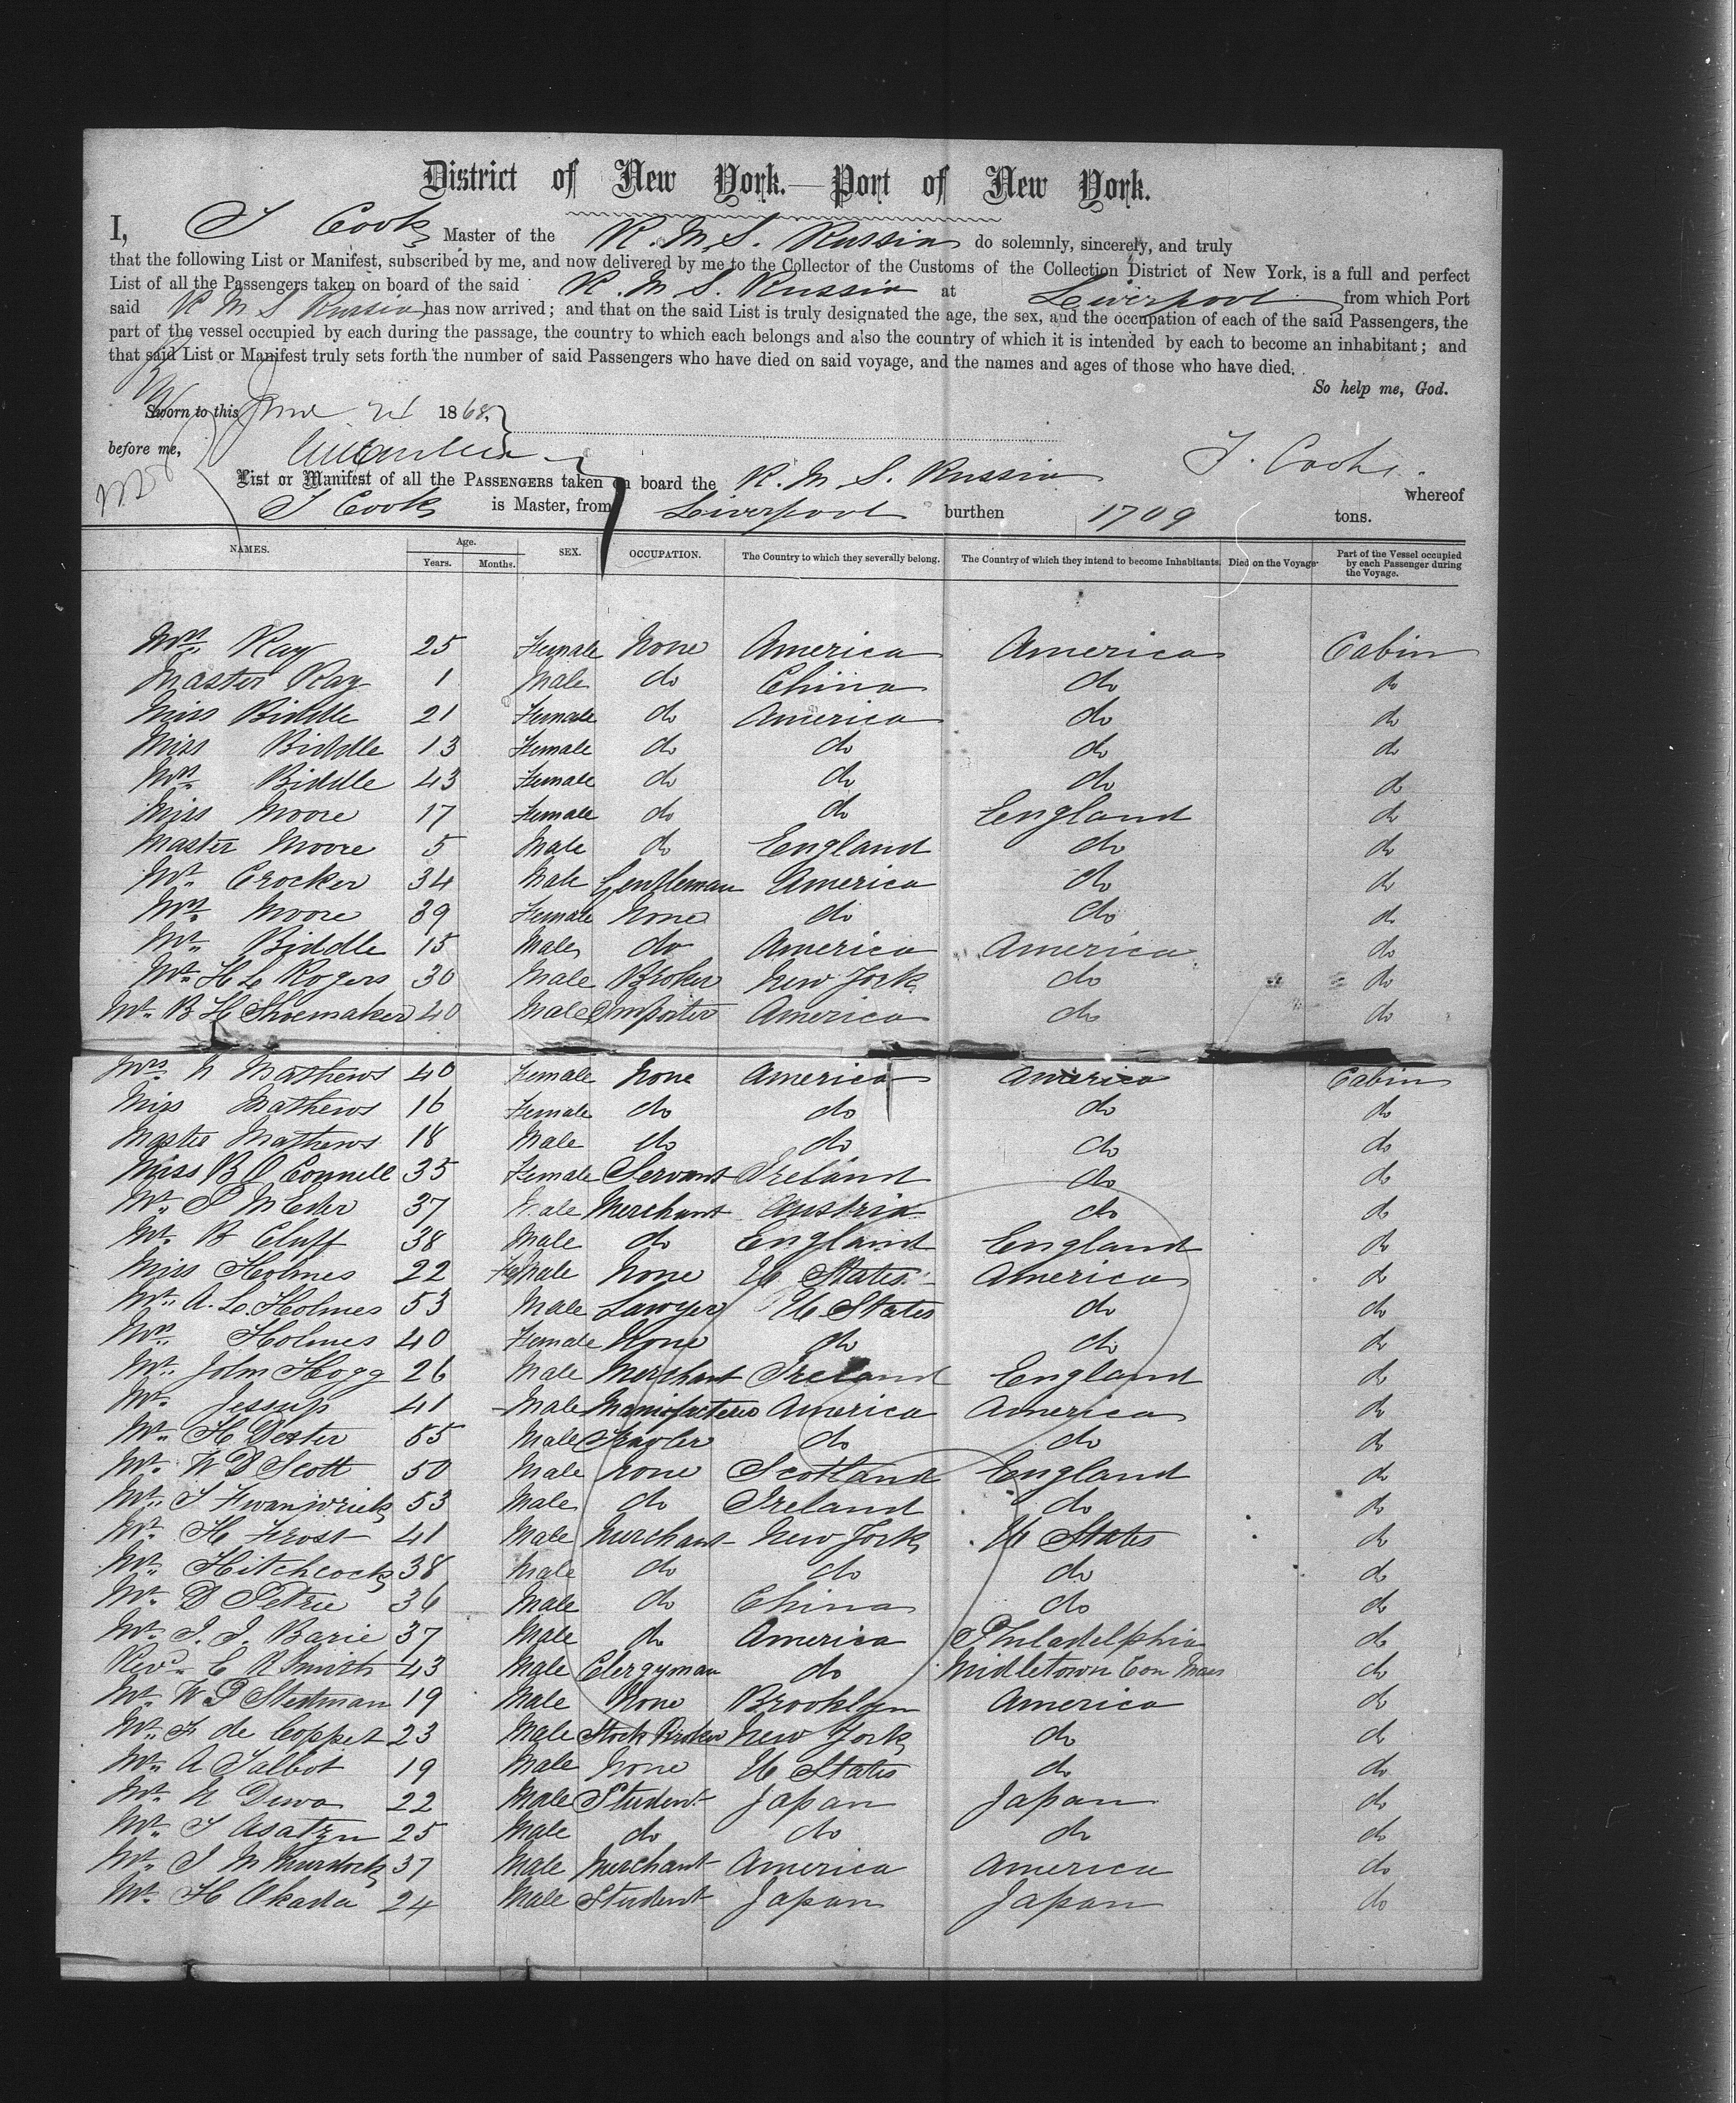 District of New York.—Port of New York.
I, T Cook Master of the R. M. S. Russia do solemnly, sincerely, and truly
that the following List or Manifest, subscribed by me, and now delivered by me to the Collector of the Customs of the Collection District of New York, is a full and perfect
List of all the Passengers taken on board of the said R. M S. Russia at Liverpool from which Port
said R M S Russia has now arrived; and that on the said List is truly designated the age, the sex, and the occupation of each of the said Passengers, the
part of the vessel occupied by each during the passage, the country to which each belongs and also the country of which it is intended by each to become an inhabitant; and
that said List or Manifest truly sets forth the number of said Passengers who have died on said voyage, and the names and ages of those who have died.
So help me, God.
Sworn to this June 24 1868.
before me, T. Cook.
List or Manifest of all the PASSENGERS taken on board the R. M. S. Russia whereof
T Cook is Master, from Liverpool burthen 1709 tons.
NAMES. Age. Years. Months. SEX. OCCUPATION. The Country to which they severally belong. The Country of which they intend to become Inhabitants. Died on the Voyage. Part of the Vessel occupied by each Passenger during the Voyage.
Mrs. Ray 25 Female None America America Cabin
Master Ray 1 Male do China do do
Miss Biddle 21 Female do America do do
Miss Biddle 13 Female do do do do
Mrs. Biddle 43 Female do do do do
Miss Moore 17 Female do do England do
Master Moore 5 Male do England do do
Mr. Crocker 34 Male Gentleman America do do
Mrs. Moore 39 Female None do do do
Mr. Biddle 15 Male do America America do
Mr. H L Rogers 30 Male Broker New York do do
Mr. B H Shoemaker 40 Male Importer America do do
Mrs. N Mathews 40 Female None America America Cabin
Miss Mathews 16 Female do do do do
Master Mathews 18 Male do do do do
Miss B O Connell 35 Female Servant Ireland do do
Mr. P M 37 Male Merchant Austria do do
Mr. B Cluff 38 Male do England England do
Miss Holmes 22 FeMale None U States America do
Mr. A. L. Holmes 53 Male Lawyer U. States do do
Mrs. Holmes 40 Female None do do do
Mr. John Hogg 26 Male Merchant Ireland England do
Mr. Jessup 41 Male Manifacterer America America do
Mr. H Dexter 55 Male do do do
Mr. W D Scott 50 Male None Scotland England do
Mr. 53 Male do Ireland do do
Mr. H Frost 41 Male Merchant New York U States do
Mr. Hitchcock 38 Male do do do do
Mr. D Petrie 36 Male do China do do
Mr. J. J. Barie 37 Male do America Philadelphia do
Revd. E R Smith 43 Male Clergyman do Midletown Con do
Mr. W P Stedman 19 Male None Brooklyn America do
Mr. F de Coppet 23 Male Stock Broker New York do do
Mr. A Talbot 19 Male None U States do do
Mr. N Dewa 22 Male Student Japan Japan do
Mr. T Asatzu 25 Male do do do do
Mr. J M Murdock 37 Male Merchant America America do
Mr. H Okada 24 Male Student Japan Japan do